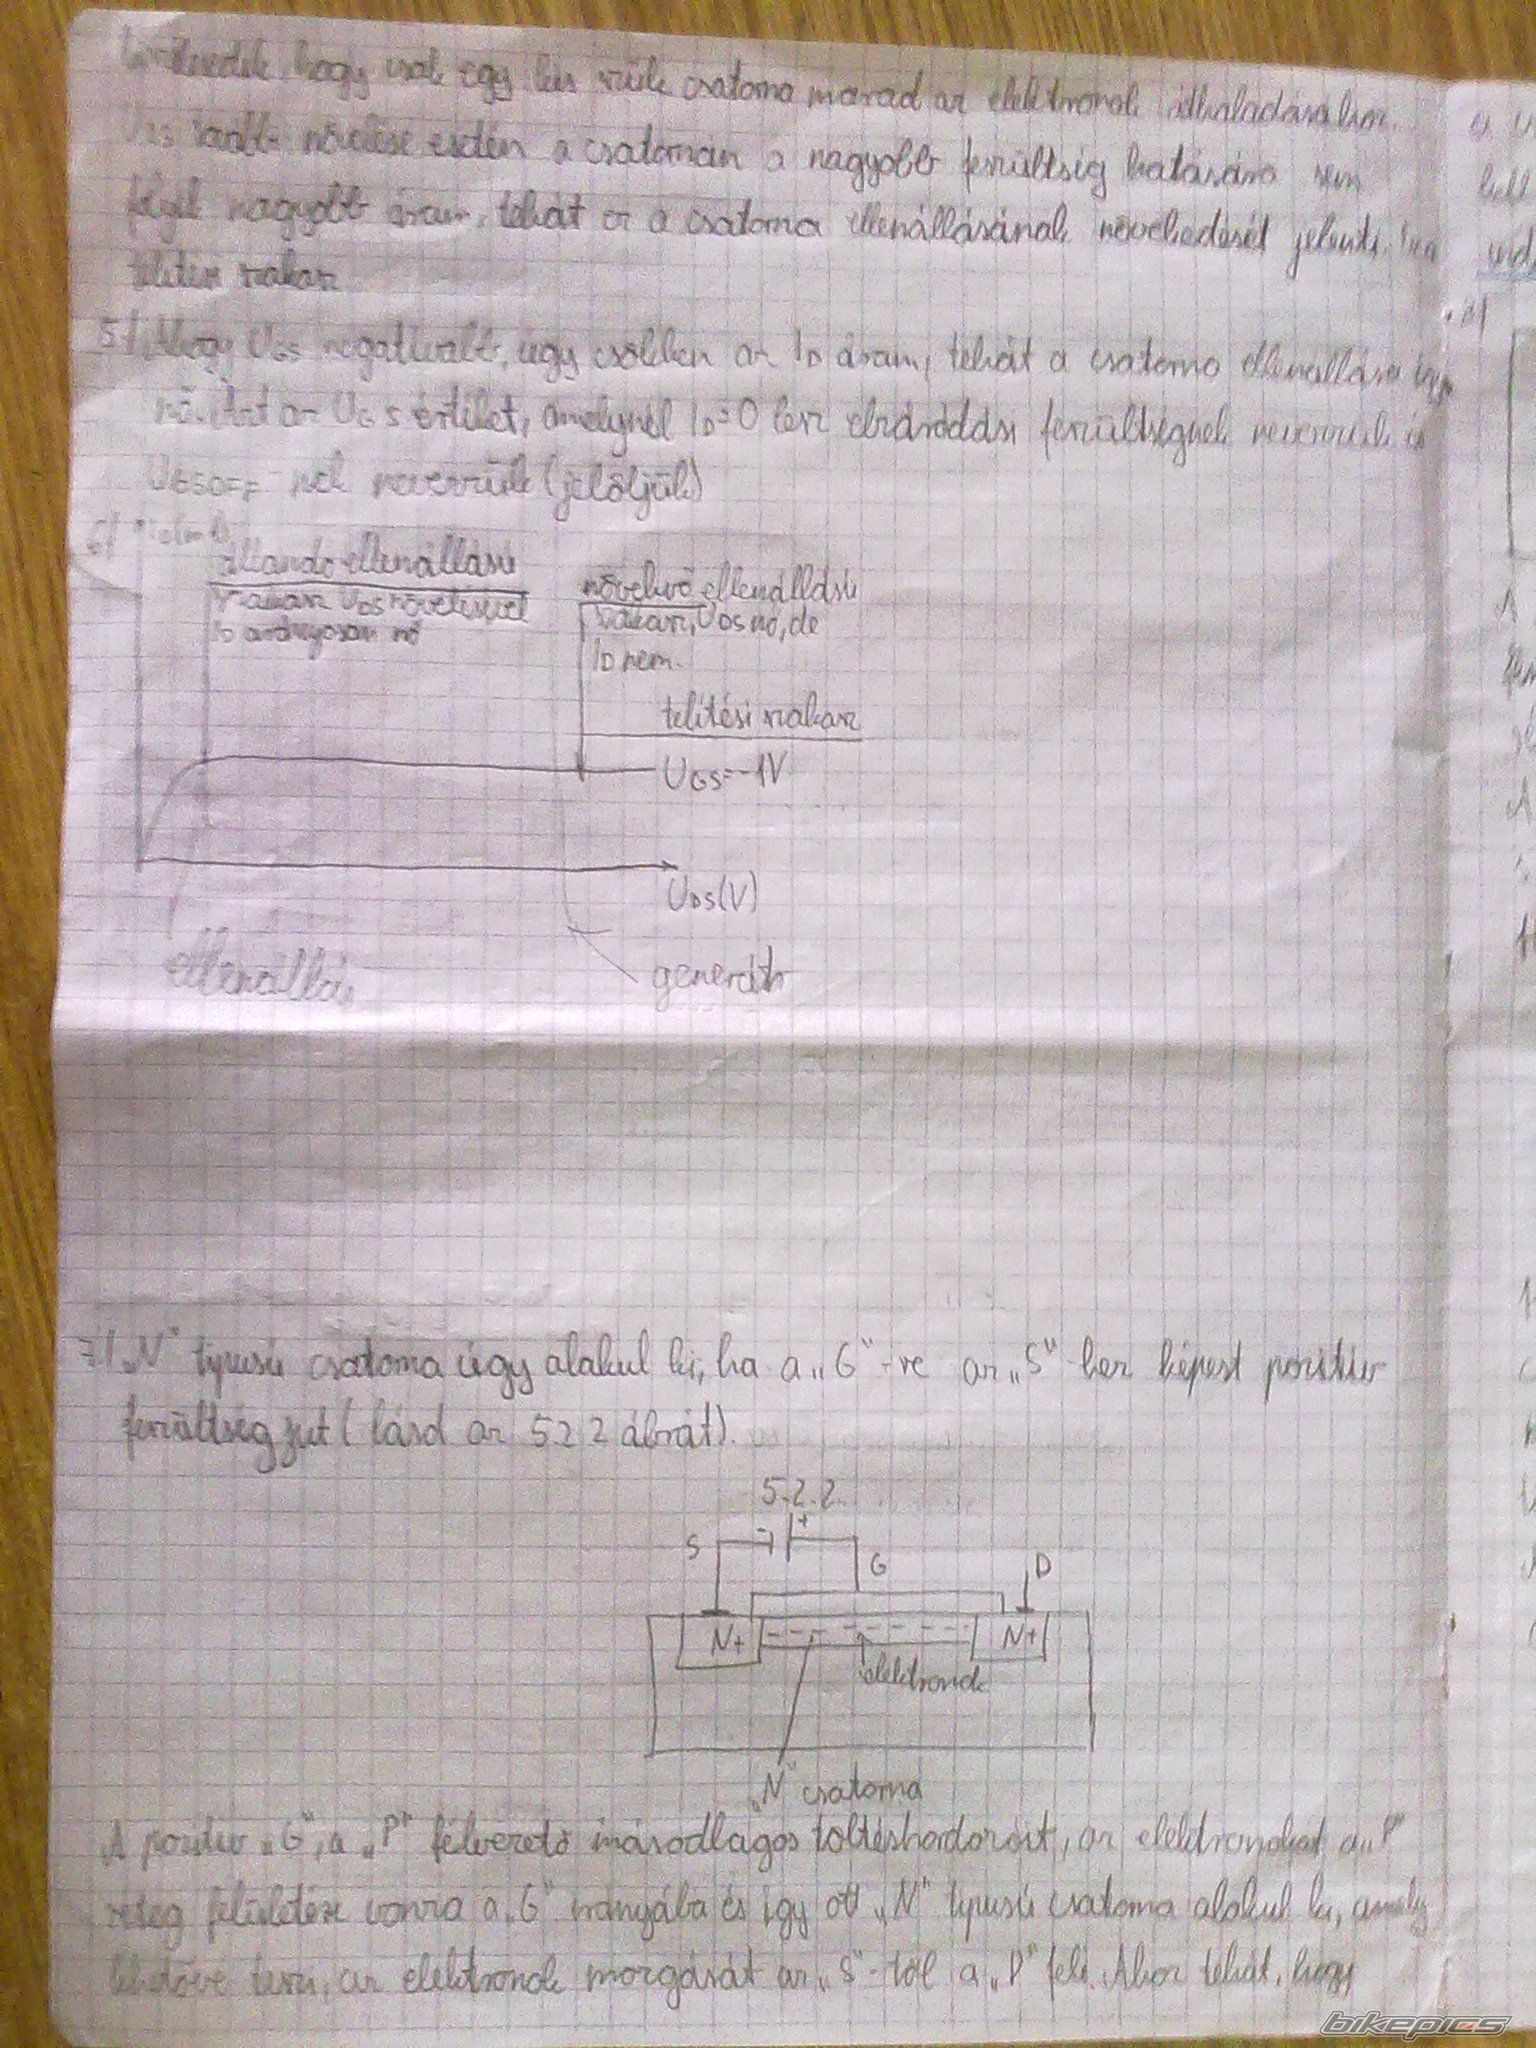 hogy csak egy kis szűk csatorna marad az elektronok áthaladásához.
UDS további növelése esetén a csatornán a nagyobb feszültség hatására sem
folyik nagyobb áram, tehát ez a csatorna ellenállásának növekedését jelenti.
telítési szakasz
5./ Ahogy UGS negatívabb, úgy csökken az ID áram, tehát a csatorna ellenállása így
nő. Azt az UGS értéket, amelynél ID=0 lesz elzáródási feszültségnek nevezzük és
UGSOFF-nek nevezzük (jelöljük)
6./
állandó ellenállású
szakasz UDS növelésével
ID arányosan nő
növekvő ellenállású
szakasz, UDS nő, de
ID nem.
telítési szakasz
UGS=-1V
UDS(V)
ellenállás
generátor
7./ „N" típusú csatorna úgy alakul ki, ha a „G"-re az „S"-hez képest pozitív
feszültség jut (lásd az 5.2.2 ábrát).
5.2.2.
- +
S G D
N+ N+
elektronok
„N" csatorna
A pozitív „G", a „P" félvezető másodlagos töltéshordozóit, az elektronokat a „P"
réteg felületére vonzza a „G" irányába és így ott „N" típusú csatorna alakul ki, amely
lehetővé teszi az elektronok mozgását az „S"-től a „D" felé. Ahhoz tehát, hogy
bikepics